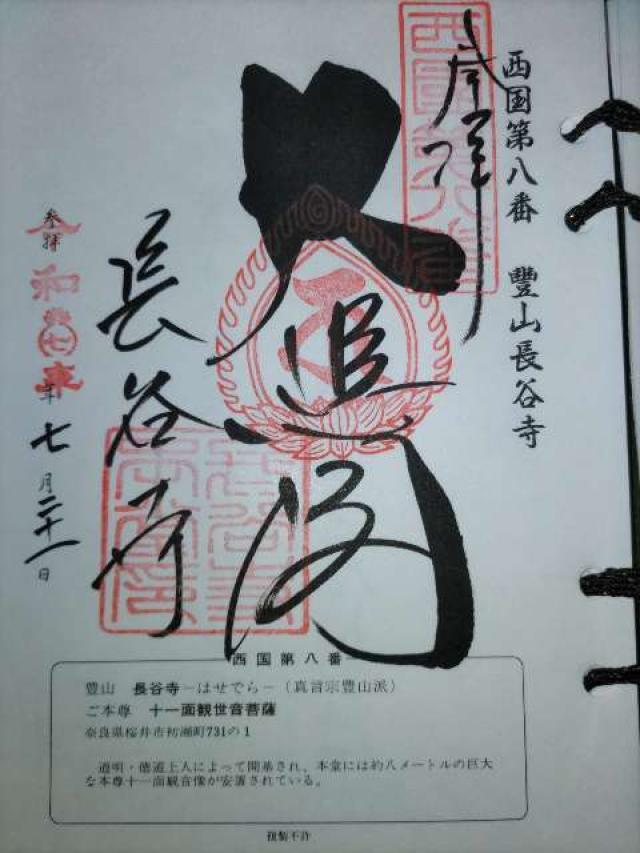 西国第八番　豐山長谷寺
奉拝
西国第八番
大悲閣
長谷寺
参拝 令和七年七月二十一日
西国第八番
豐山　長谷寺－はせでら－（真言宗豊山派）
ご本尊　十一面観世音菩薩
奈良県桜井市初瀬町731の1
道明・徳道上人によって開基され、本堂には約八メートルの巨大
な本尊十一面観音像が安置されている。
複製不許